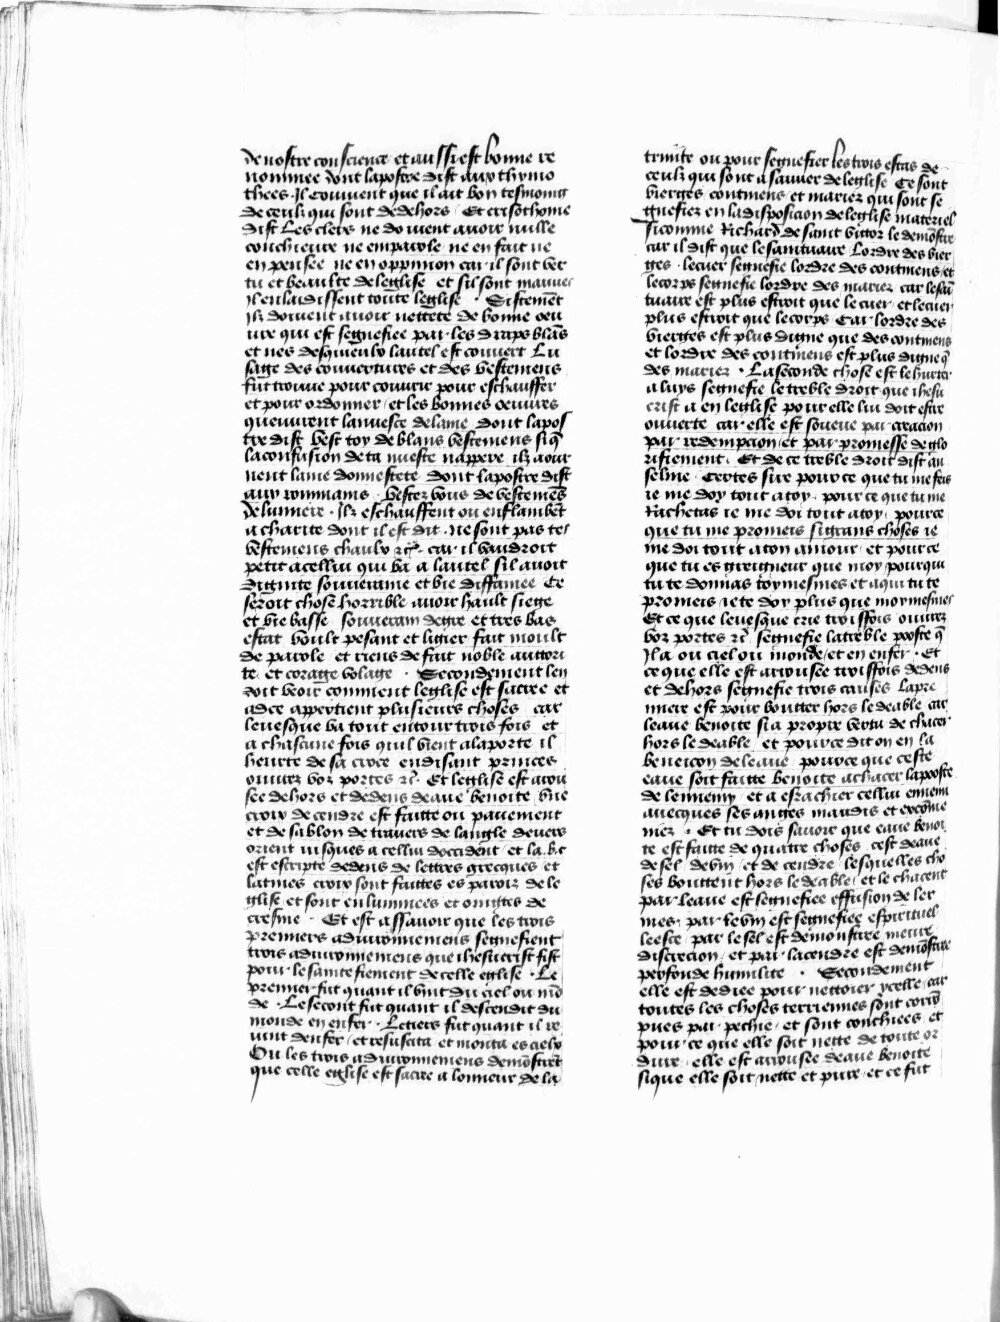 de nostre conscience et aussi est bonne re
nommee dont lapostre dist aux thymo
thees. Il couuient que il ait bon tesmoing
de ceulx qui sont dedehors Et crisothome
dist Les clers ne doiuent auoir nulle
conchieure ne en parole ne en fait ne
en pensee ne en oppinion car il sont ver
tu et beaulte de leglise et sil sont mauuez
il enlaidissent toute leglise . Sistement
ilz doiuent auoir nettete de bonne oeu
ure qui est segnefiee par les draps blās
et nes desquieulx lautel est couuert Lu
sage des couuertures et des vestemens
fut trouue pour couurir pour eschauffer
et pour ordonner et les bonnes oeuures
queuurent la nuesce de lame dont lapos
tre dist vest toy de blans vestemens si q̄
la confusion de ta nueste nappere ilz aour
nent lame donnestete dont lapostre dist
aux rommains vestez vous de vestemēs
de lumiere . Ilz eschauffent ou enflambēt
a charite dont il est dit . Ne sont pas tes
vestemens chaulx rc̄ . car il vaudroit
petit a cellui qui va a lautel sil auoit
dignite souueraine et vie diffamee Ce
seroit chose horrible auoir hault siege
et vie basse souuerain degre et tres bas
estat voult pesant et ligier fait moult
de parole et riens de fait noble auttori
te et corage volage . Secondement len
doit veoir comment leglise est sacree et
adce appertient plusieurs choses car
leuesque va tout entour trois fois et
a chascune fois quil vient a laporte il
heurte de sa croce en disant princes
ouurez voz portes rc̄ . Et leglise est arou
see dehors et dedens deaue benoite vne
croix de cendre est faitte ou pauement
et de sablon de trauers de langle deuers
orient iusques a cellui doccident et la.b.c
est escripte dedens de lettres grecques et
latines croix sont faittes es parois de le
glise et sont enluminees et ointtes de
cresme . Et est assauoir que les trois
premiers aduironnemens segnefient
trois aduironnemens que ihesucrist fist
pour le saintefiement de celle eglise . Le
premier fut quant il vint du ciel ou mō
de . Le secont fut quant il descendit du
monde en enfer . Le tiers fut quant il re
uint denfer et resuscita et monta es cielx
Ou les trois aduironnemens demōstrēt
que celle eglise est sacree a lonneur de la
trinite ou pour segnefier les trois estas de
ceulx qui sont a sauuer de leglise Ce sont
vierges continens et mariez qui sont se
gnefiez en la disposicion de leglise materiel
Sicomme Richard de saint victor le demōstre
car il dist que le saintuaire lordre des vier
ges . le cuer segnefie lordre des continens et
le corps segnefie lordre des mariez car le sai
tuaire est plus estroit que le cuer et le cuer
plus estroit que le corps Car lordre des
vierges est plus digne que des continens
et lordre des continens est plus digne q̄
des mariez . La seconde chose est le hurter
a luys segnefie le treble droit que ihesu
crist a en leglise pour elle lui doit estre
ouuerte car elle est soueue par creacion
par redempcion et par promesse de glo
rifiement . Et de ce treble droit dist an
selme . Certes sire pour ce que tu me feis
ie me doy tout a toy . pour ce que tu me
Rachetas ie me doi tout a toy . pour ce
que tu me promeis si grans choses ie
me doi tout a ton amour et pour ce
que tu es greigneur que moy pour qui
tu te donnas toy mesmes et a qui tu te
promeis ie te doy plus que moy mesmes
Et ce que leuesque crie trois fois ouurez
voz portes rc̄ segnefie la treble pooste q̄
il a ou ciel ou monde et en enfer . Et
ce que elle est arousee trois fois dedens
et dehors segnefie trois causes La pre
miere est pour boutter hors le deable car
leaue benoite si a propre vertu de chacer
hors le deable et pour ce dit on en la
beneicon de leaue pour ce que ceste
eaue soit faitte benoite a chacer la poste
de lennemy et a esrachier cellui ennemi
auecques ses anges maudis et excōme
niez . Et tu dois sauoir que eaue benoi
te est faitte de quatre choses cest deaue
de sel de vin et de cendre lesquelles cho
ses bouttent hors le deable et le chacent
par leaue est segnefiee effusion de ler
mes . par le vin est segnefiee espirituel
leesce par le sel est demonstree meure
discrecion et par la cendre est demōstree
perfonde humilite . Secondement
elle est dediee pour nettoier ycelle car
toutes les choses terriennes sont corrō
pues par pechie et sont conchiees et
pour ce que elle soit nette de toute or
dure elle est arousee deaue benoite
si que elle soit nette et pure et ce fut